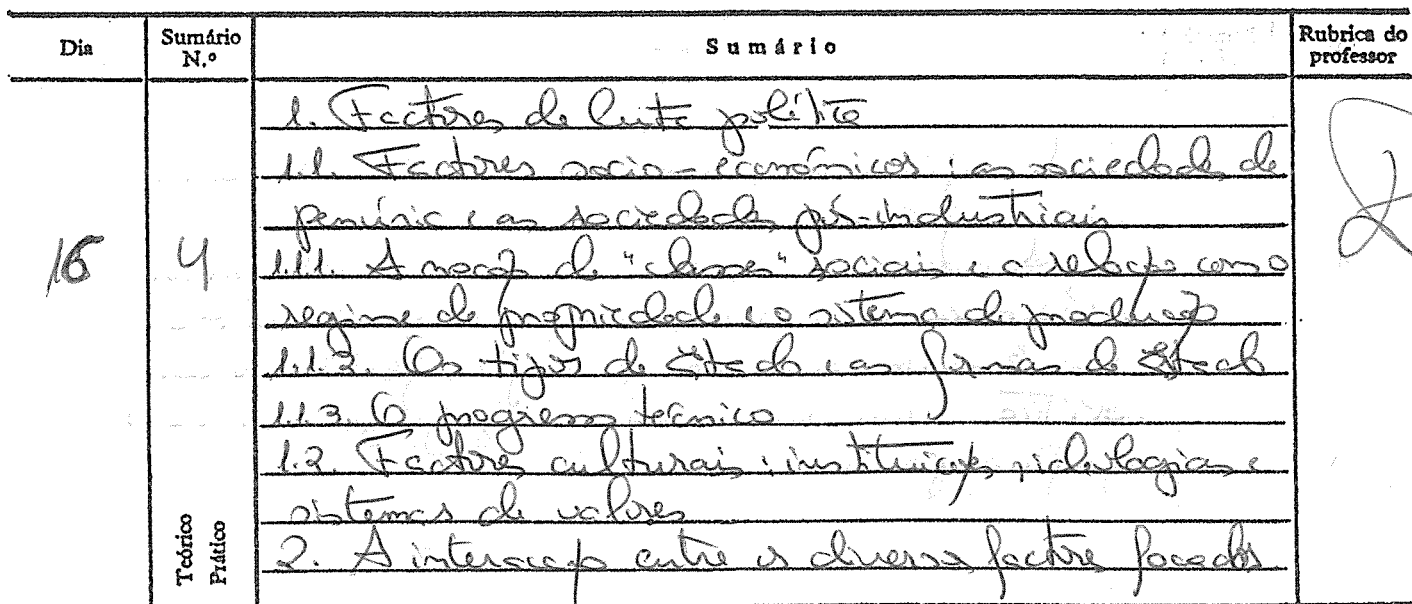 Dia
Sumário N.º
Sumário
Rubrica do professor
16
4
Teórico
Prático
1. Factores de luta política
1.1. Factores socio-económicos: as sociedades de
penúria e as sociedades pós-industriais
1.1.1. A noção de "classes" sociais e a relação com o
regime de propriedade e o sistema de produção
1.1.2. Os tipos de Estado e as formas de Estado
1.1.3. O progresso técnico
1.2. Factores culturais: instituições, ideologias e
sistemas de valores
2. A interacção entre os diversos factores focados